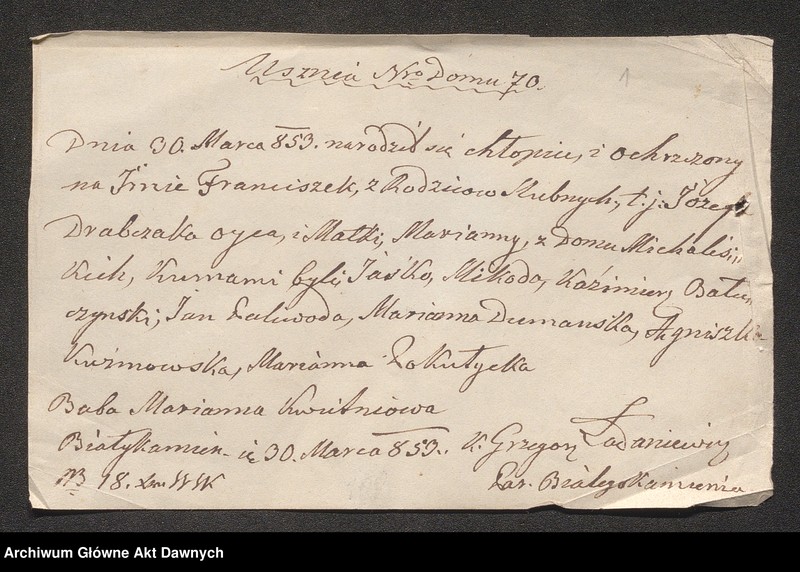 Usznia Nro Domu 70.
1
Dnia 30. Marca 853. narodził się chłopiec, i ochrzczony
na Imie Franciszek, z Rodzicow slubnych, t. j. Józefa
Drabczaka oyca, i Matki, Marianny, z Domu Michaleś,,
kich, Kumami byli, Jaśko, Mikoda, Kaźimierz Bału,,
czynski, Jan Maria Dumańska, Agniszka
Kuźmowska, Marianna Łokutycka
Baba Marianna Kwitniowa
Białykamień 30. Marca 853. X. Grzegorz Ładaniewicz
NB 18. Par. Białegokamienia
Archiwum Główne Akt Dawnych